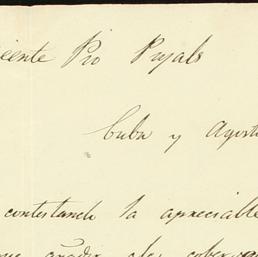 icente Pio Pujals
Cuba y Agosto
contestando la apreciable
que añadir